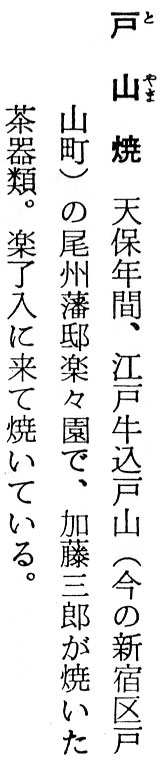 戸山焼 天保年間、江戸牛込戸山（今の新宿区戸
山町）の尾州藩邸楽々園で、加藤三郎が焼いた
茶器類。楽了入に来て焼いている。